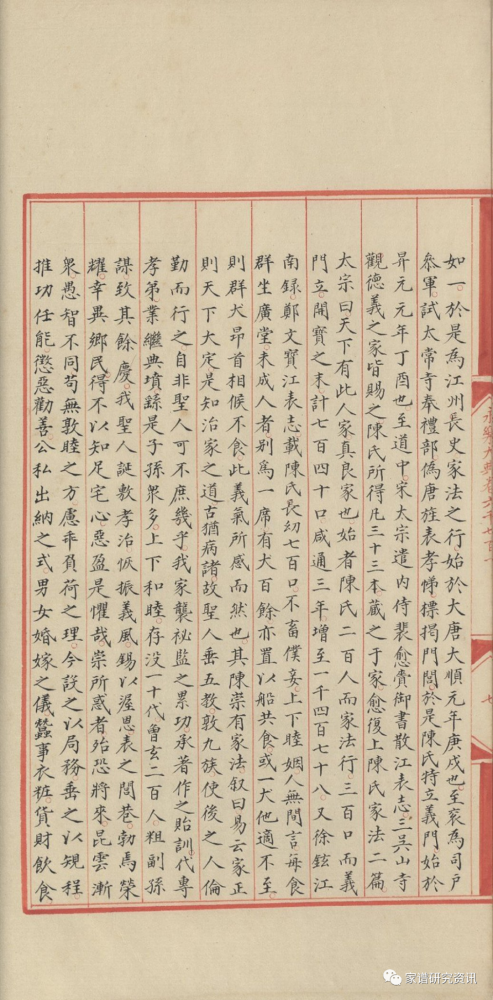 如一於是爲江州長史家法之行始於大唐大順元年庚戌也至衮爲司戶
叅軍試太常寺奉禮部僞唐旌表孝悌摽揭門閭於是陳氏特立義門始於
昇元元年丁酉也至道中宋太宗遣内侍裴愈賫御書散江表志三吴山寺
觀德義之家皆賜之陳氏所得凡三十三本藏之于家愈復上陳氏家法二篇
太宗曰天下有此人家真良家也始者陳氏二百人而家法行三百口而義
門立開寳之末計七百四十口咸通三年增至一千四百七十八又徐鉉江
南録鄭文寳江表志載陳氏長幼七百口不畜僕妾上下睦姻人無間言每食
群坐廣堂未成人者别爲一席有犬百餘亦置以船共食或一犬他適不至
則群犬昂首相候不食此義氣所感而然也其陳崇有家法叙曰易云家正
則天下大定是知治家之道古猶病諸故聖人垂五教敦九族使後之人倫
勤而行之自非聖人可不庶幾乎我家襲祕監之累功承著作之貽訓代專
孝弟業繼典墳繇是子孫衆多上下和睦存没一十代曾玄二百人粗副孫
謀致其餘慶我聖人誕敷孝治恢振義風錫以渥恩表之閭巷勃焉榮
耀幸異鄉民得不以知足宅心惡盈是懼哉崇所惑者殆恐將來昆雲漸
衆愚智不同苟無敦睦之方慮乖負荷之理今設之以局務垂之以規程
推功任能懲惡勸善公私出納之式男女婚嫁之儀蠶事衣粧貨財飲食
家谱研究资讯